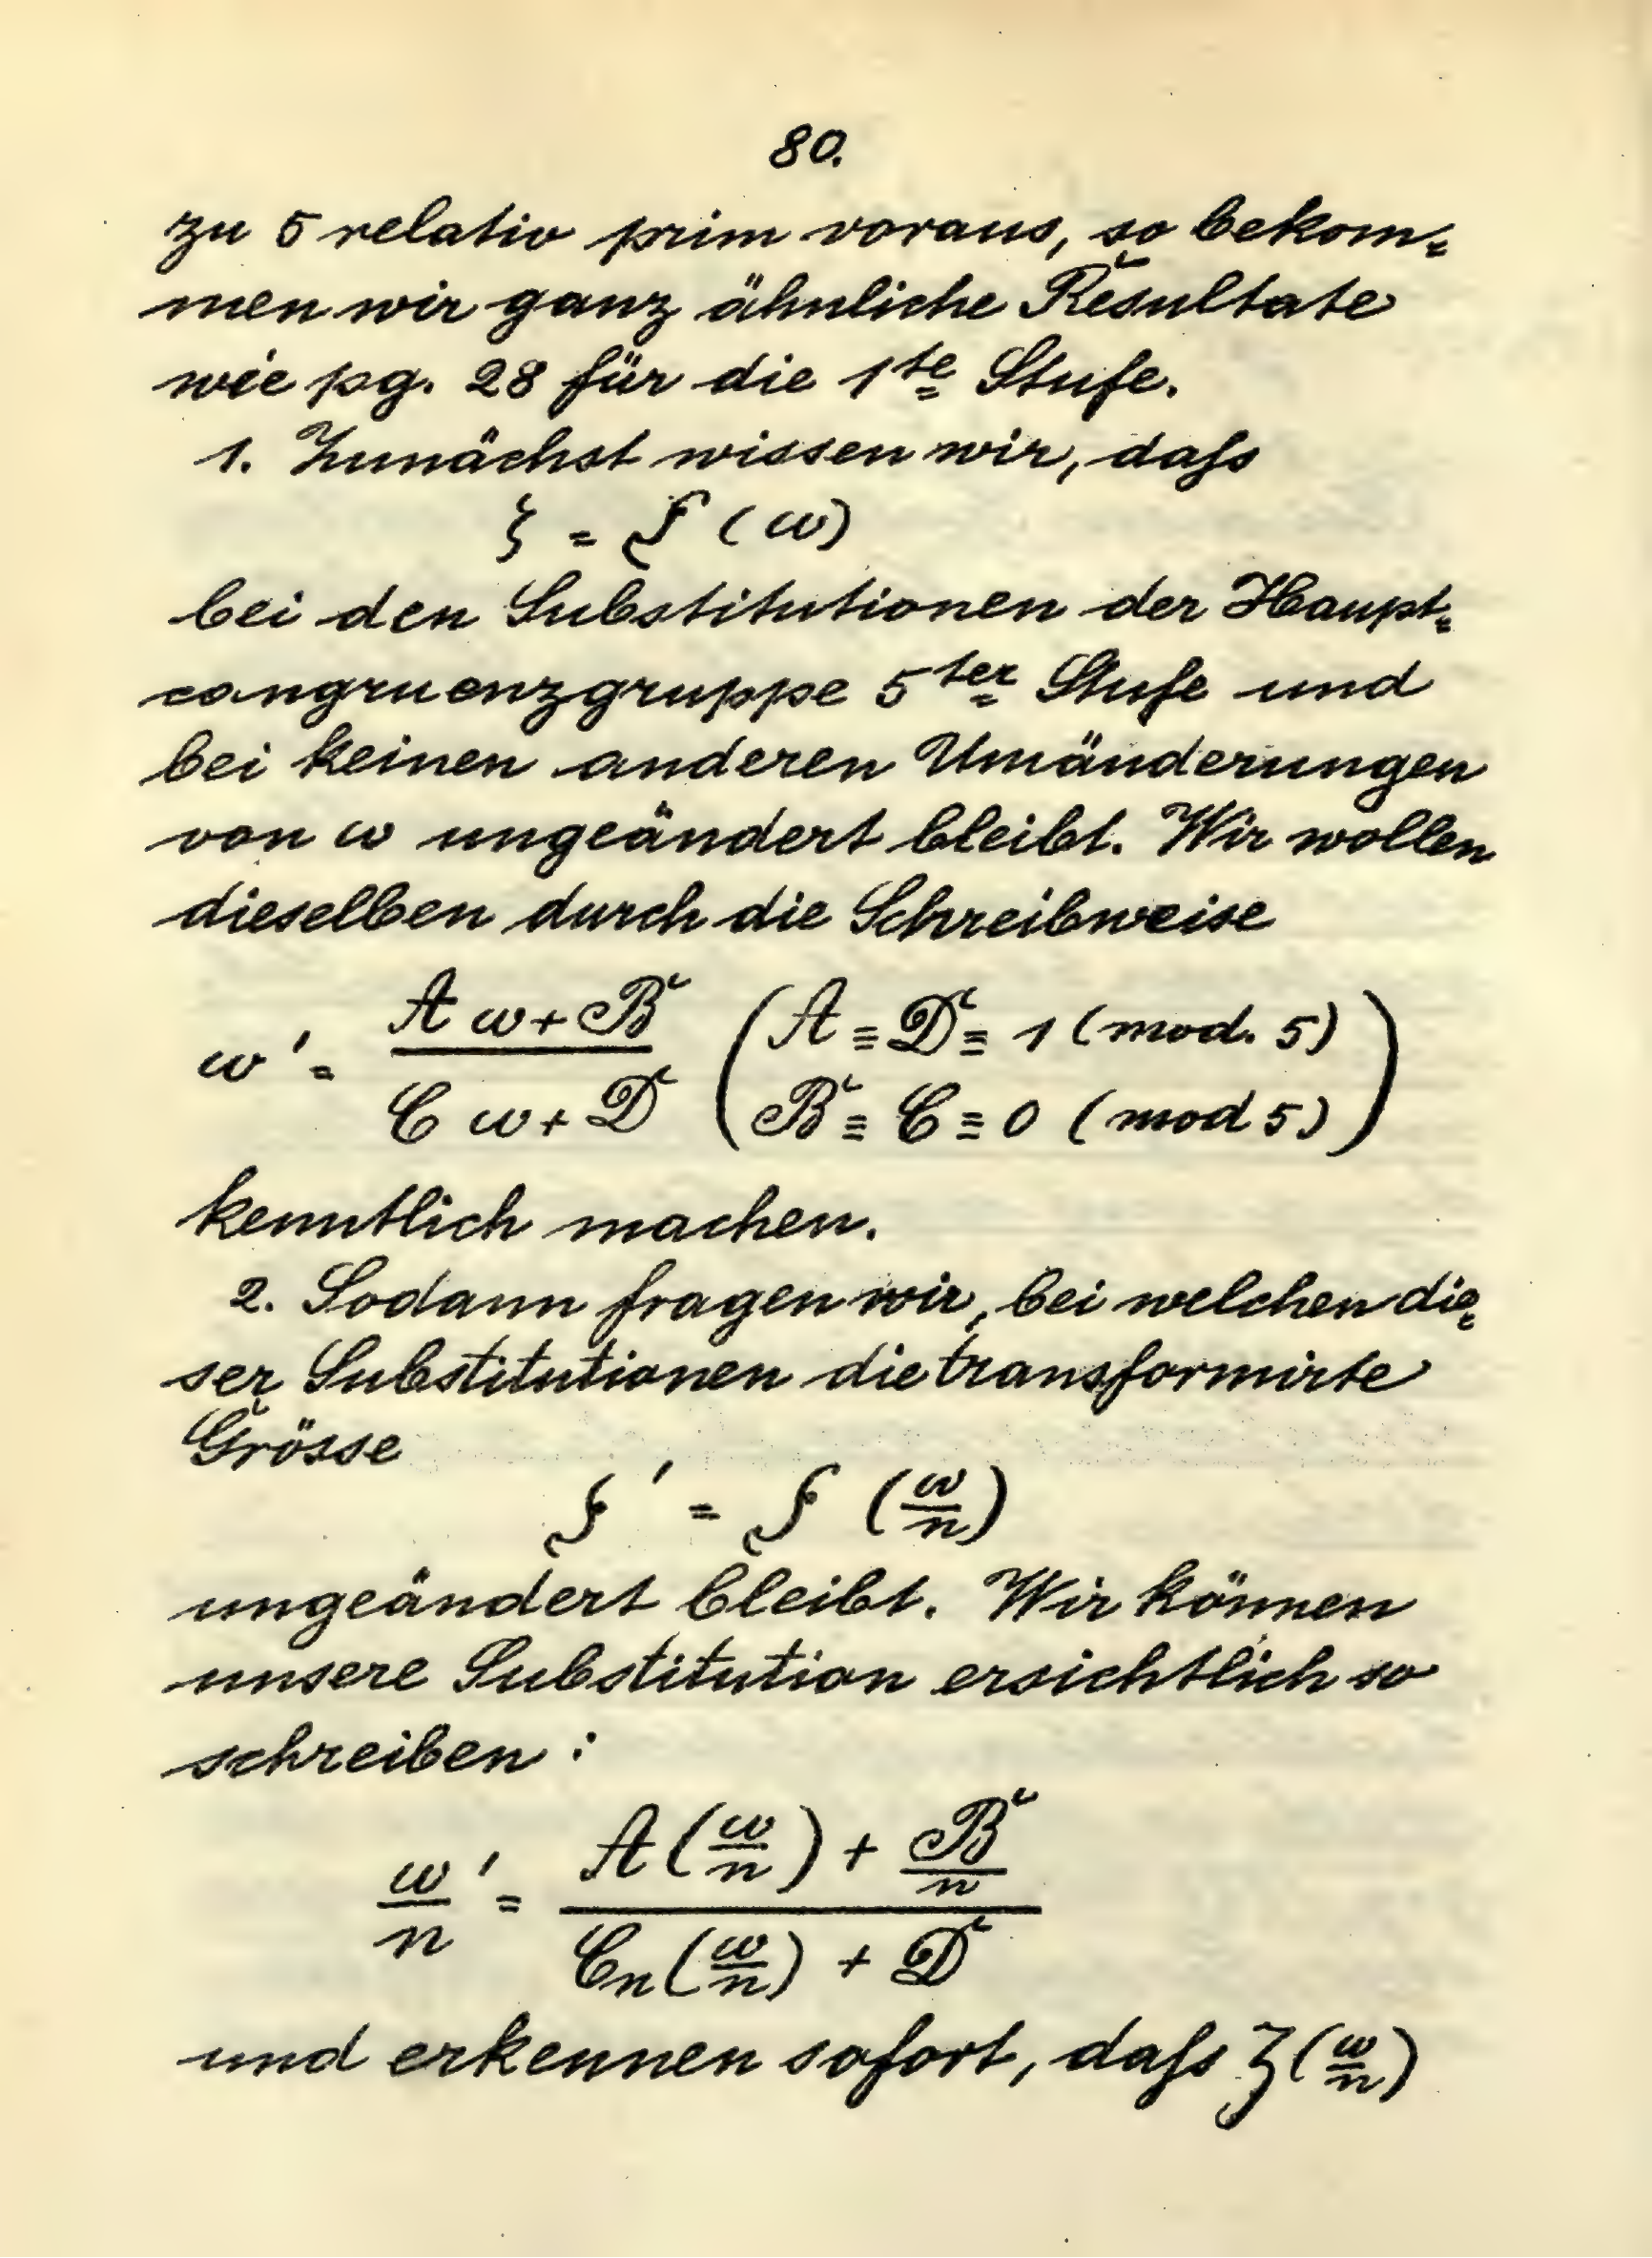 80.
zu 5 relativ prim voraus, so bekom=
men wir ganz ähnliche Resultate
wie pg. 28 für die 1te Stufe.
1. Zunächst wissen wir, daſs
ζ = ζ (ω)
bei den Substitutionen der Haupt=
congruenzgruppe 5ter Stufe und
bei keinen anderen Umänderungen
von ω ungeändert bleibt. Wir wollen
dieselben durch die Schreibweise
ω' = (A ω + B)/(C ω + D) (A ≡ D ≡ 1 (mod. 5) B ≡ C ≡ 0 (mod 5))
kenntlich machen.
2. Sodann fragen wir, bei welchen die=
ser Substitutionen die transformirte
Grösse
ζ' = ζ (ω/n)
ungeändert bleibt. Wir können
unsere Substitution ersichtlich so
schreiben :
ω'/n = (A (ω/n) + B/n)/(Cn (ω/n) + D)
und erkennen sofort, daſs ζ (ω/n)